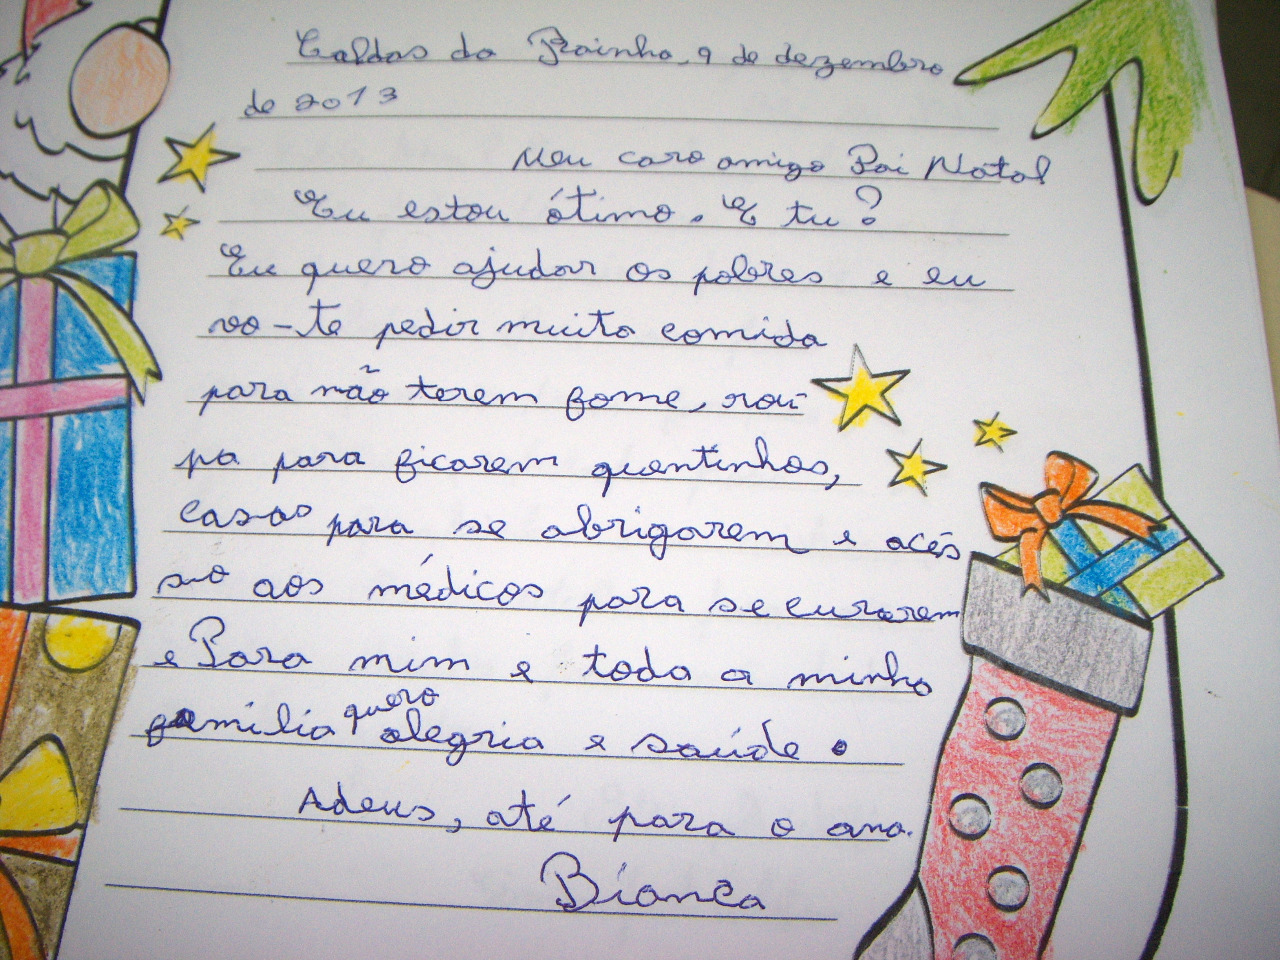 Caldas da Rainha, 9 de dezembro
de 2013
Meu caro amigo Pai Natal
Eu estou ótimo. E tu?
Eu quero ajudar os pobres e eu
vo-te pedir muita comida
para não terem fome, rou-
pa para ficarem quentinhos,
casas para se abrigarem e acés
so aos médicos para se curarem
e Para mim e toda a minha
familia quero alegria e saúde.
Adeus, até para o ano.
Bianca